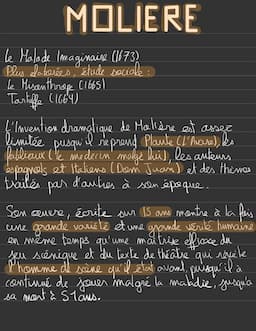 MOLIERE
Le Malade Imaginaire (1673)
Plus élaborées, étude sociale :
Le Misanthrope (1665)
Tartuffe (1664)
L'Invention dramatique de Molière est assez
limitée puisqu'il reprend Plaute (L'Avare), les
fabliaux (le médecin malgé lui), les auteurs
espagnols et Italiens (Dom Juan) et des thèmes
traités par d'autres à son époque.
Son œuvre, écrite sur 15 ans montre à la fois
une grande variété et une grande vérité humaine
en même temps qu'une maîtrise efficace du
jeu scénique et du texte de théâtre qui révèle
l'homme de scène qu'il était avant, puisqu'il a
continué de jouer malgré la maladie, jusqu'à
sa mort à 51 ans.